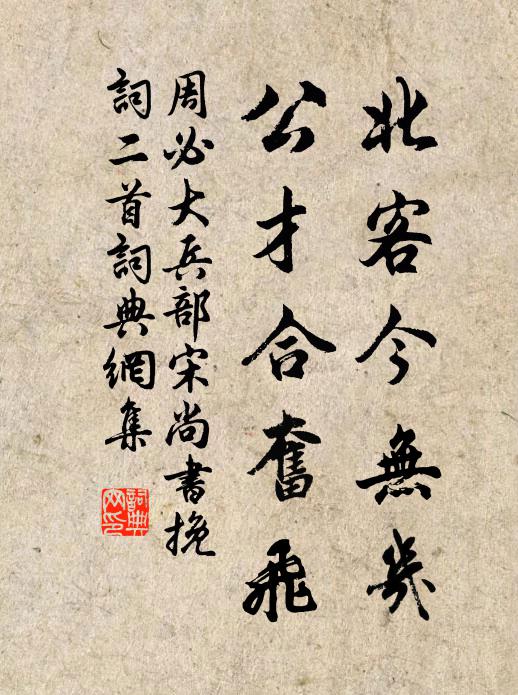 北客今無幾
公才合奮飛
周必大兵部宋尚書挽
詞二首詞典網集
詞典
网印